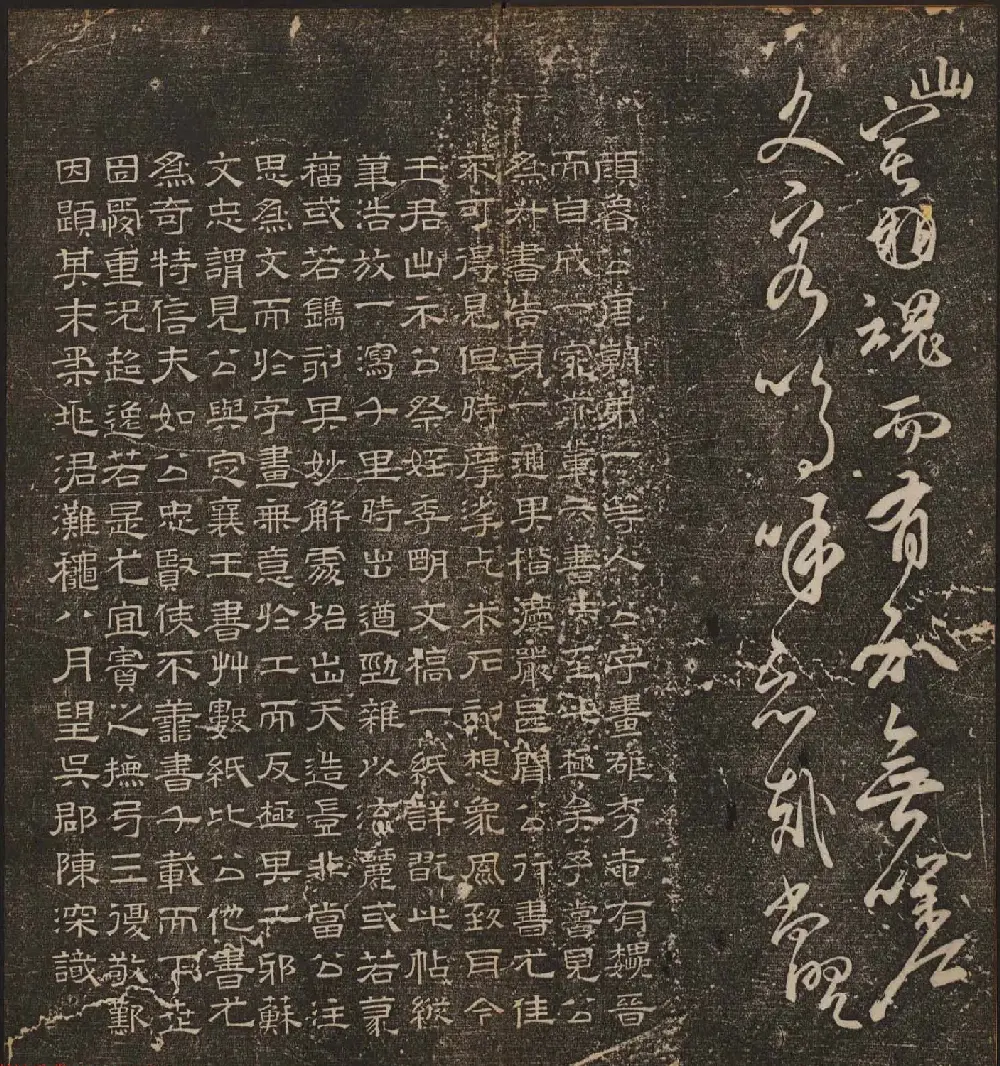 幽宅魂而有知無嗟
久客嗚呼哀哉尚饗
顏魯公唐朝第一等人公字畫雄秀奄有魏晉
而自成一家前輩云書法至此極矣予嘗見公
為尚書告身一通其楷灋嚴甚聞公行書尤佳
不可得見但時摩挲乞米石刻想象風致耳今
王君出示公祭姪季明文稿一紙詳翫此帖縱
筆浩放一瀉千里時出遒勁雜以流麗或若篆
籀或若鐫刻其妙解處殆出天造豈非當公注
思為文而於字畫無意於工而反極其工邪蘇
文忠謂見公與定襄王書艸數紙比公他書尤
為奇特信夫如公忠賢使不善書千載而下世
固愛重況超逸若是尤宜寶之撫卷三復敬歎
因題其末柔兆涒灘穐八月望吳郡陳深識